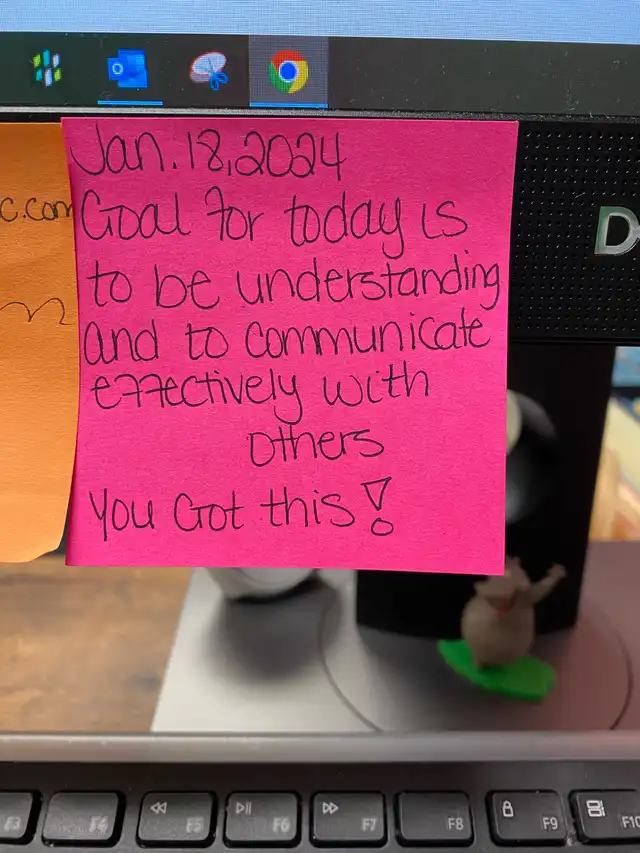 Jan. 18, 2024
Goal for today is
to be understanding
and to communicate
effectively with
others
You Got this!
c.com
D
F3
F4
F5
F6
F7
F8
F9
F10